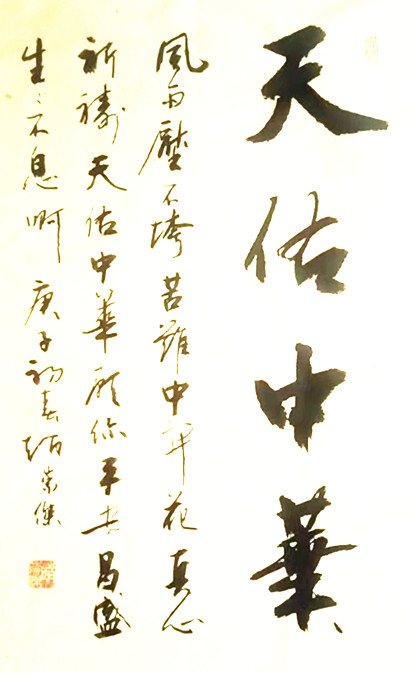 天佑中華
風雨壓不垮苦難中開花真心
祈禱天佑中華願你平安昌盛
生〻不息啊 庚子初春